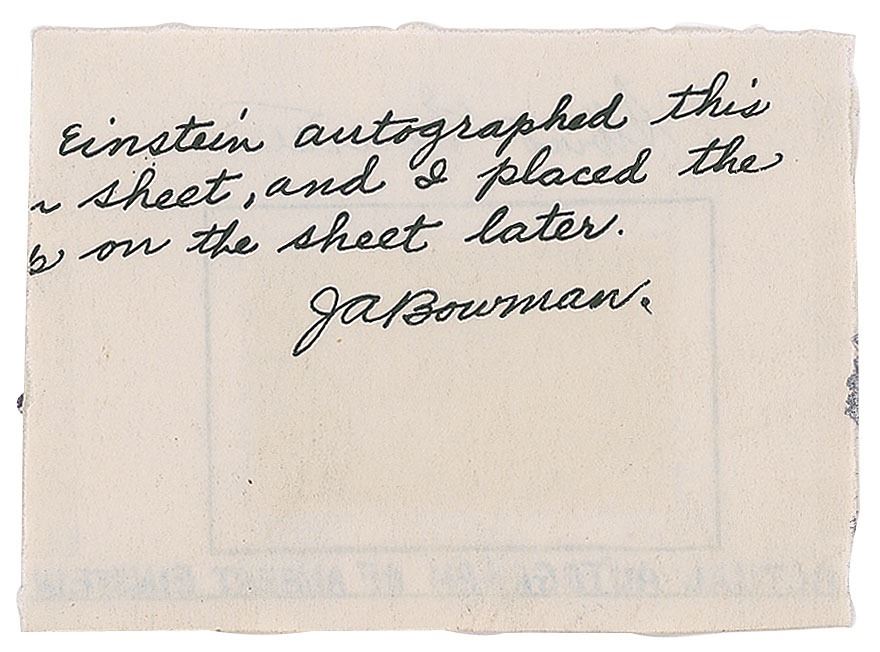 Einstein autographed this
sheet, and I placed the
on the sheet later.
JABowman.